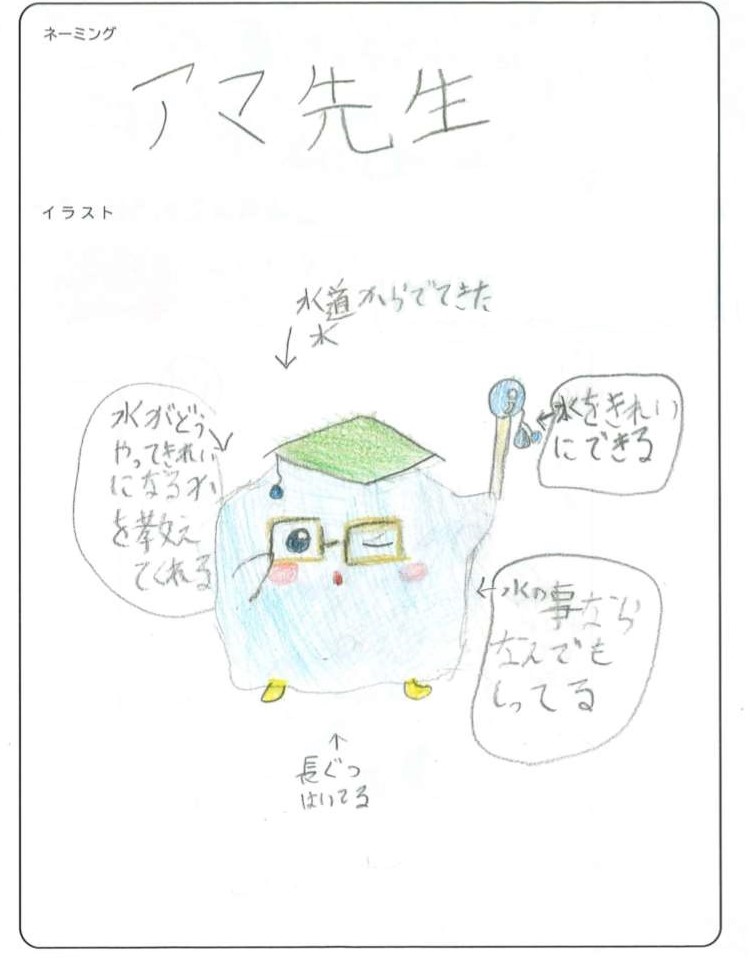 ネーミング
アマ先生
イラスト
水道からでてきた
水
水がどう
やってきれい
になるか
を教え
てくれる
水をきれい
にできる
水の事なら
なんでも
しってる
長ぐつ
はいてる